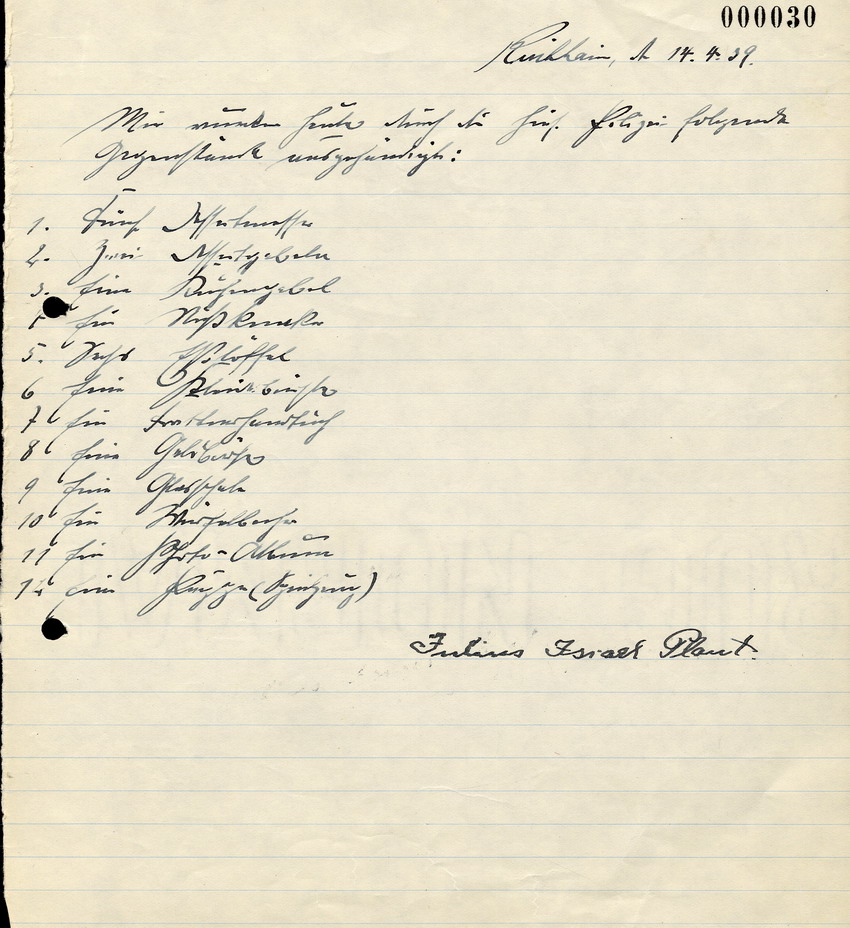 000030
Kirchhain, d 14.4.39.
Mir wurden heute durch die hies. Polizei folgende
Gegenstände ausgehändigt:
1. Fünf Dessertmesser
2. Zwei Dessertgabeln
3. Eine Kuchengabel
4 Ein Nußknacker
5. Sechs Eßlöffel
6 Eine Kleiderbürste
7 Ein Frottierhandtuch
8 Eine Geldbörse
9 Eine Glasschale
10 Ein Würfelbecher
11 Ein Photo-Album
12 Eine Puppe (Spielzeug)
Julius Israel Plaut.